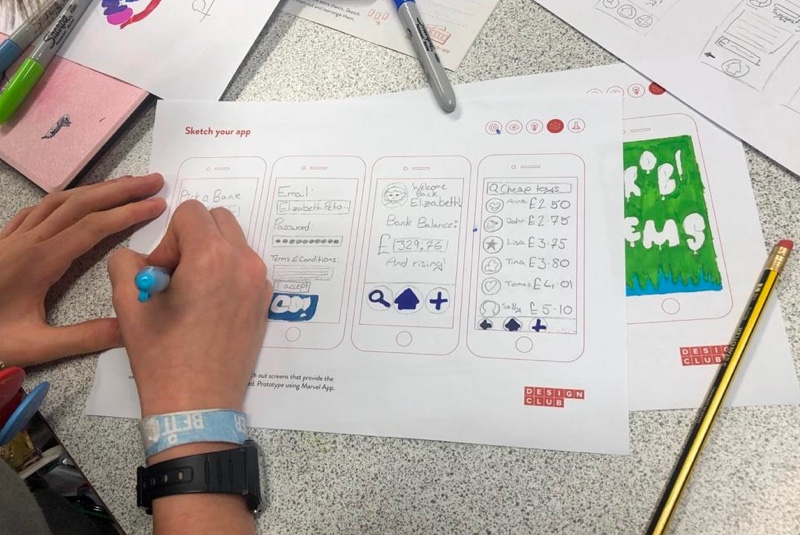 Sketch your app
Pick a Bank.
Email:
Elizabeth.Peto.
Password:
Terms & Conditions:
I accept
Welcome
Back
Elizabeth!
Bank Balance:
£ 329,76
And rising!
Cheap toys
£2.50
John £2.75
Lisa £3.75
Tina £3.80
£4.01
Sally £5.10
out screens that provide the
Prototype using Marvel App.
DESIGN
CLUB
ROB!
EMS
DESIGN
CLUB
BETT
Sharpie